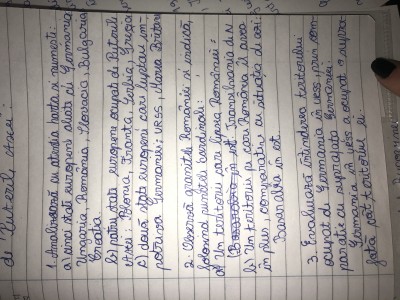 di Puteril Axei:
1. Analizează cu atenție harta si numesti:
a) cinci state europene aliate cu Germania
Ungaria, România, Slovacia, Bulgaria
Croația
b) patru state europene ocupate de Puterile
Axei: Polonia, Franta, Serbia, Grecia
c) două state europene care luptau îm-
potriva Germaniei: URSS, Marea Britanie
2. Observă granitele României si indică,
folosind punctele cardinale:
a) Un teritoriu care lipsea României:
Transilvania de N
b) Un teritoriu pe care România îl avea
în plus, comparativ cu situatia de azi:
Basarabia în est.
3. Evaluează întinderea teritoriului
ocupat de Germania în URSS, prin com-
paratie cu suprafata Germaniei.
Germania în URSS a ocupat o supra-
fata cât teritoriul ei.